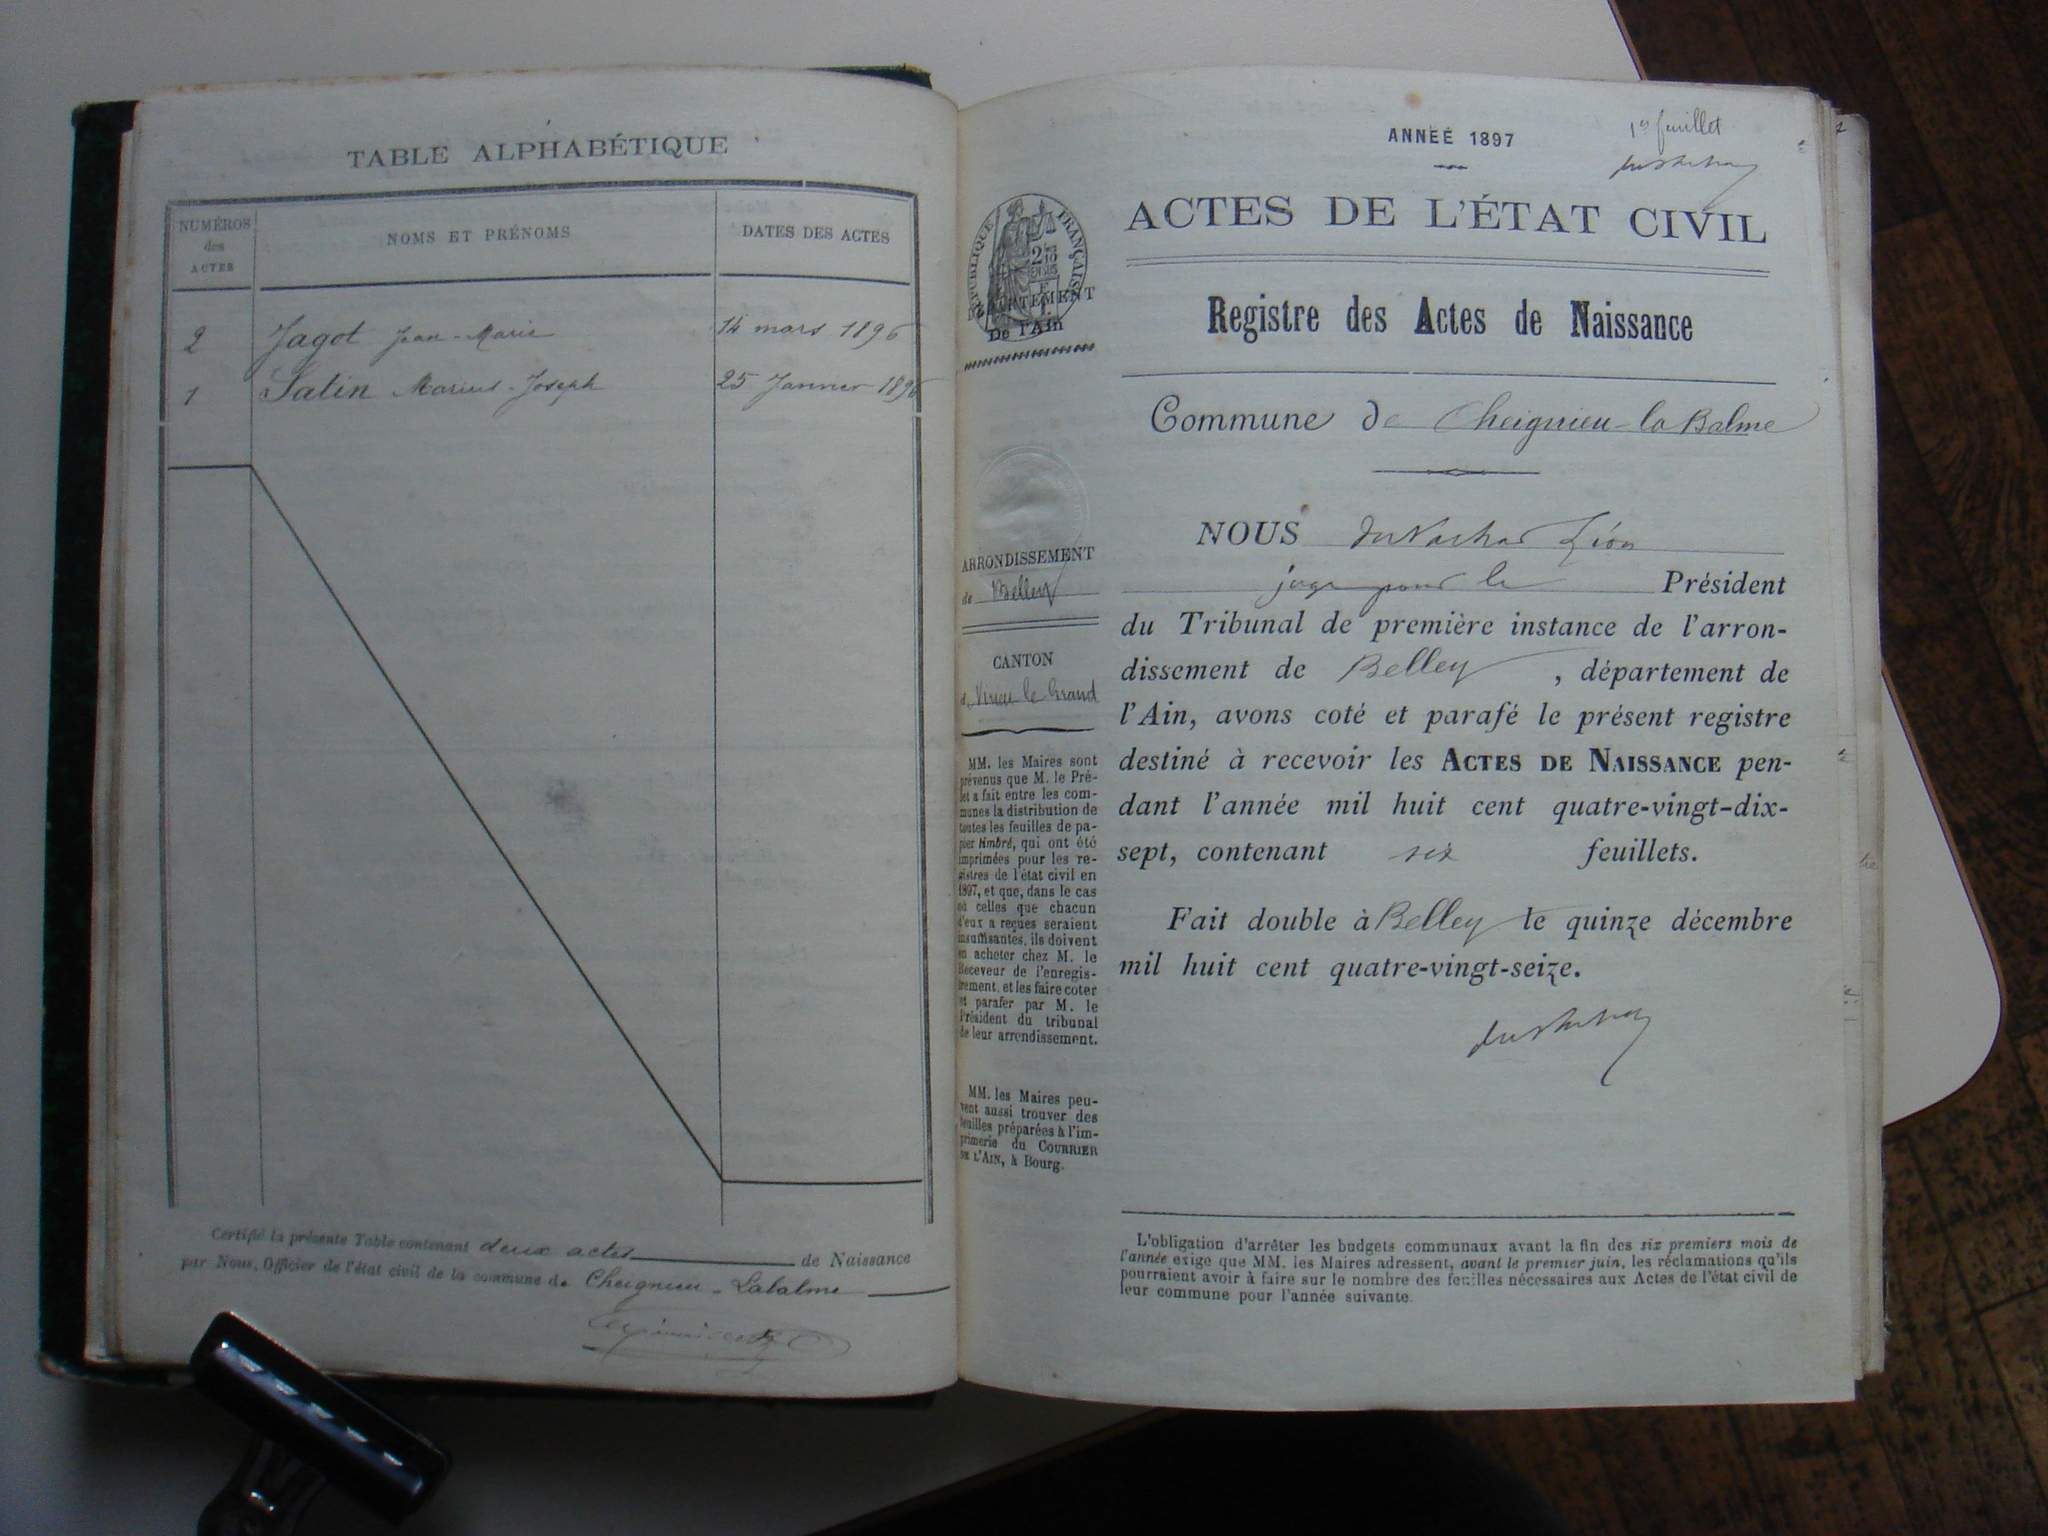 TABLE ALPHABÉTIQUE
NUMÉROS
des
ACTES
NOMS ET PRÉNOMS
DATES DES ACTES
2 Jagot Jean-Marie 14 mars 1896
1 Salin Marius-Joseph 25 Janvier 1896
Certifié la présente Table contenant deux actes de Naissance
par Nous, Officier de l'état civil de la commune de Cheignieu-Labalme
ANNÉE 1897
1er feuillet
ACTES DE L'ÉTAT CIVIL
RÉPUBLIQUE FRANÇAISE
DÉPARTEMENT
De l'Ain
Registre des Actes de Naissance
Commune de Cheignieu-la Balme
ARRONDISSEMENT
de Belley
CANTON
de Virieu le Grand
MM. les Maires sont
prévenus que M. le Pré-
fet a fait entre les com-
munes la distribution de
toutes les feuilles de pa-
pier timbré, qui ont été
imprimées pour les re-
gistres de l'état civil en
1897, et que, dans le cas
où celles que chacun
d'eux a reçues seraient
insuffisantes, ils doivent
en acheter chez M. le
Receveur de l'enregis-
trement, et les faire coter
et parafer par M. le
Président du tribunal
de leur arrondissement.
MM. les Maires peu-
vent aussi trouver des
feuilles préparées à l'im-
primerie du COURRIER
DE L'AIN, à Bourg.
NOUS Léon
juge pour le Président
du Tribunal de première instance de l'arron-
dissement de Belley, département de
l'Ain, avons coté et parafé le présent registre
destiné à recevoir les ACTES DE NAISSANCE pen-
dant l'année mil huit cent quatre-vingt-dix-
sept, contenant six feuillets.
Fait double à Belley le quinze décembre
mil huit cent quatre-vingt-seize.
L'obligation d'arrêter les budgets communaux avant la fin des six premiers mois de
l'année exige que MM. les Maires adressent, avant le premier juin, les réclamations qu'ils
pourraient avoir à faire sur le nombre des feuilles nécessaires aux Actes de l'état civil de
leur commune pour l'année suivante.